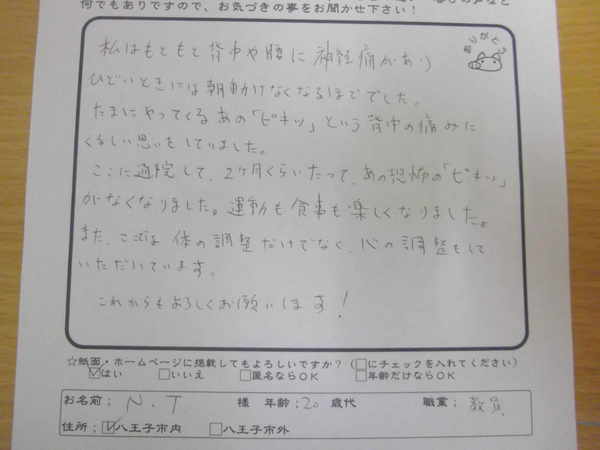 何でもありですので、お気づきの事をお聞かせ下さい！
ありがとう
私はもともと背中や腰に神経痛があり
ひどいときには朝動けなくなるほどでした。
たまにやってくるあの「ピキッ」という背中の痛みに
くるしい思いをしていました。
ここに通院して、2ヶ月くらいたって、あの恐怖の「ピキッ」
がなくなりました。運動も食事も楽しくなりました。
また、ここでは体の調整だけでなく、心の調整もして
いただいています。
これからもよろしくお願いします！
☆紙面・ホームページに掲載してもよろしいですか？（□にチェックを入れてください）
☑はい □いいえ □匿名ならOK □年齢だけならOK
お名前； N.T 様 年齢；20 歳代 職業； 教員
住所； ☑八王子市内 □八王子市外